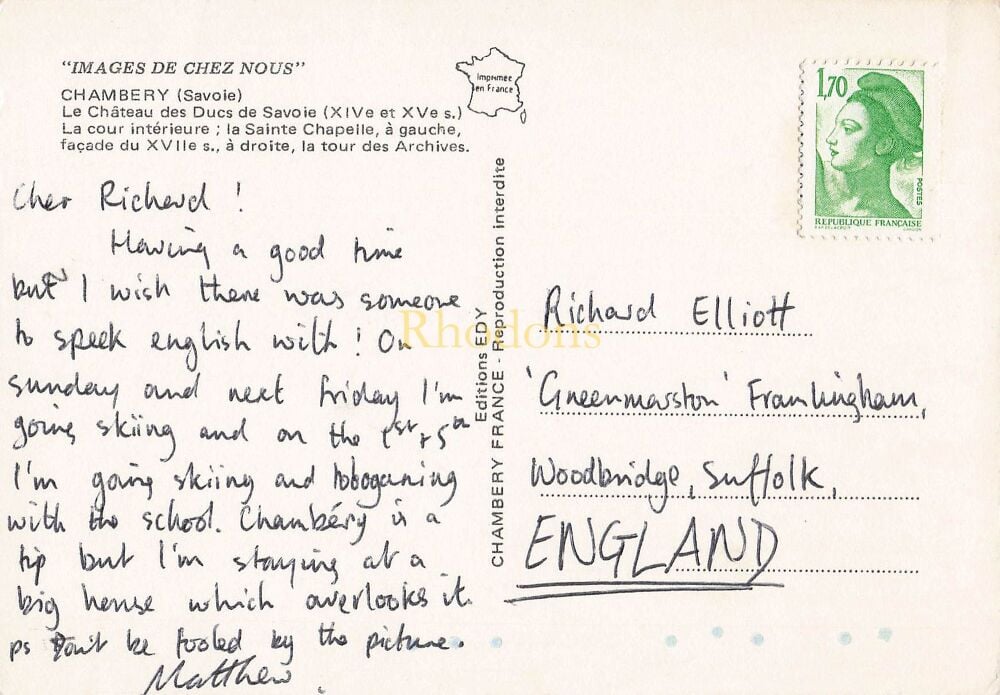 "IMAGES DE CHEZ NOUS"
CHAMBERY (Savoie)
Le Château des Ducs de Savoie (XIVe et XVe s.)
La cour intérieure ; la Sainte Chapelle, à gauche,
façade du XVIIe s., à droite, la tour des Archives.
Imprimée
en France
Cher Richard !
Having a good time
but I wish there was someone
to speek english with ! On
sunday and next friday I'm
going skiing and on the 1st + 5th
I'm going skiing and toboganing
with the school. Chambéry is a
tip but I'm staying at a
big house which overlooks it.
ps Don't be fooled by the picture.
Matthew.
Editions EDY
CHAMBERY FRANCE - Reproduction interdite
Rhodons
1,70
POSTES
REPUBLIQUE FRANÇAISE
Richard Elliott
'Greenmarston' Framlingham,
Woodbridge, Suffolk,
ENGLAND